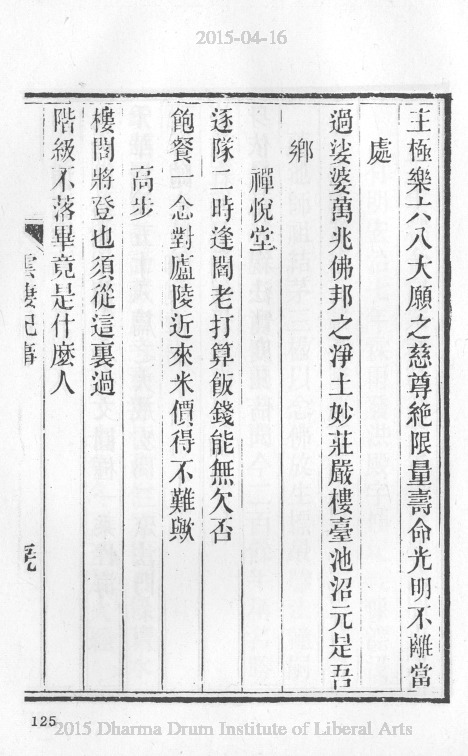 2015-04-16
主極樂六八大願之慈尊絶限量壽命光明不離當
處
過娑婆萬兆佛邦之淨土妙莊嚴樓臺池沼元是吾
鄉
禪悅堂
逐隊二時逢閻老打算飯錢能無欠否
飽餐一念對廬陵近來米價得不難歟
高步
樓閣將登也須從這裏過
階級不落畢竟是什麼人
雲棲紀事
125
2015 Dharma Drum Institute of Liberal Arts